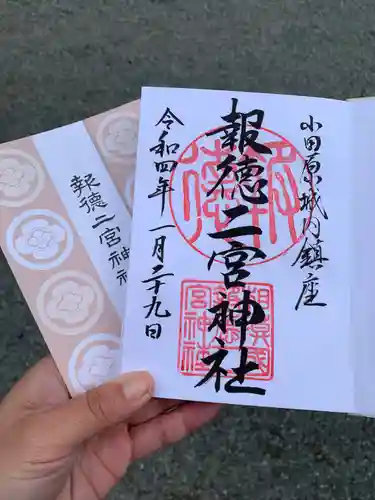 小田原城内鎮座
報徳二宮神社
令和四年一月二十九日
報徳
相模國
報徳二
宮神社
報徳二宮神社